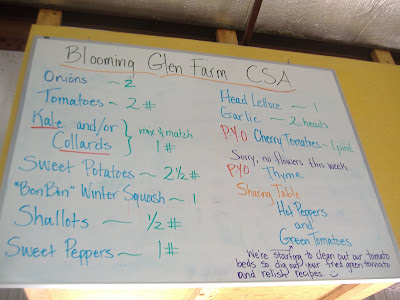 Blooming Glen Farm CSA
Onions ~ 2
Tomatoes ~ 2 #
Kale and/or
Collards } mix & match 1 #
Sweet Potatoes ~ 2½ #
"BonBon" Winter Squash ~ 1
Shallots ~ ½ #
Sweet Peppers ~ 1 #
Head Lettuce ~ 1
Garlic ~ 2 heads
PYO Cherry Tomatoes ~ 1 pint
Sorry, no flowers this week.
PYO Thyme
Sharing Table
Hot Peppers
and
Green Tomatoes
We're starting to clean out our tomato
beds so dig out your fried green tomato
and relish recipes.